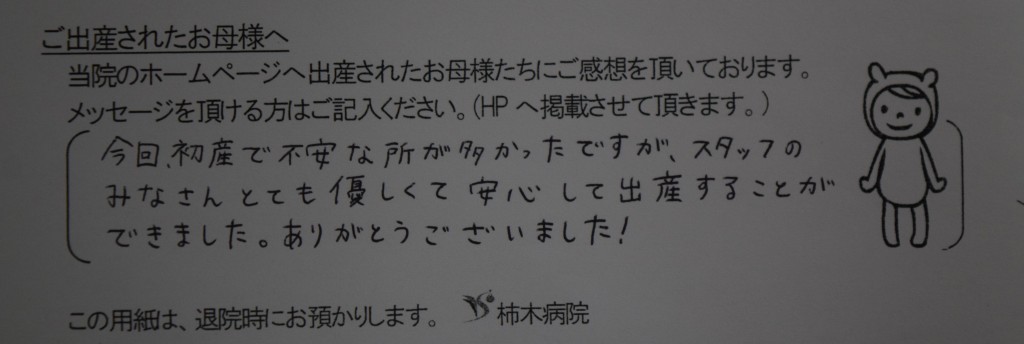 ご出産されたお母様へ
当院のホームページへ出産されたお母様たちにご感想を頂いております。
メッセージを頂ける方はご記入ください。(HPへ掲載させて頂きます。)
今回、初産で不安な所が多かったですが、スタッフの
みなさんとても優しくて安心して出産することが
できました。ありがとうございました!
この用紙は、退院時にお預かりします。 柿木病院